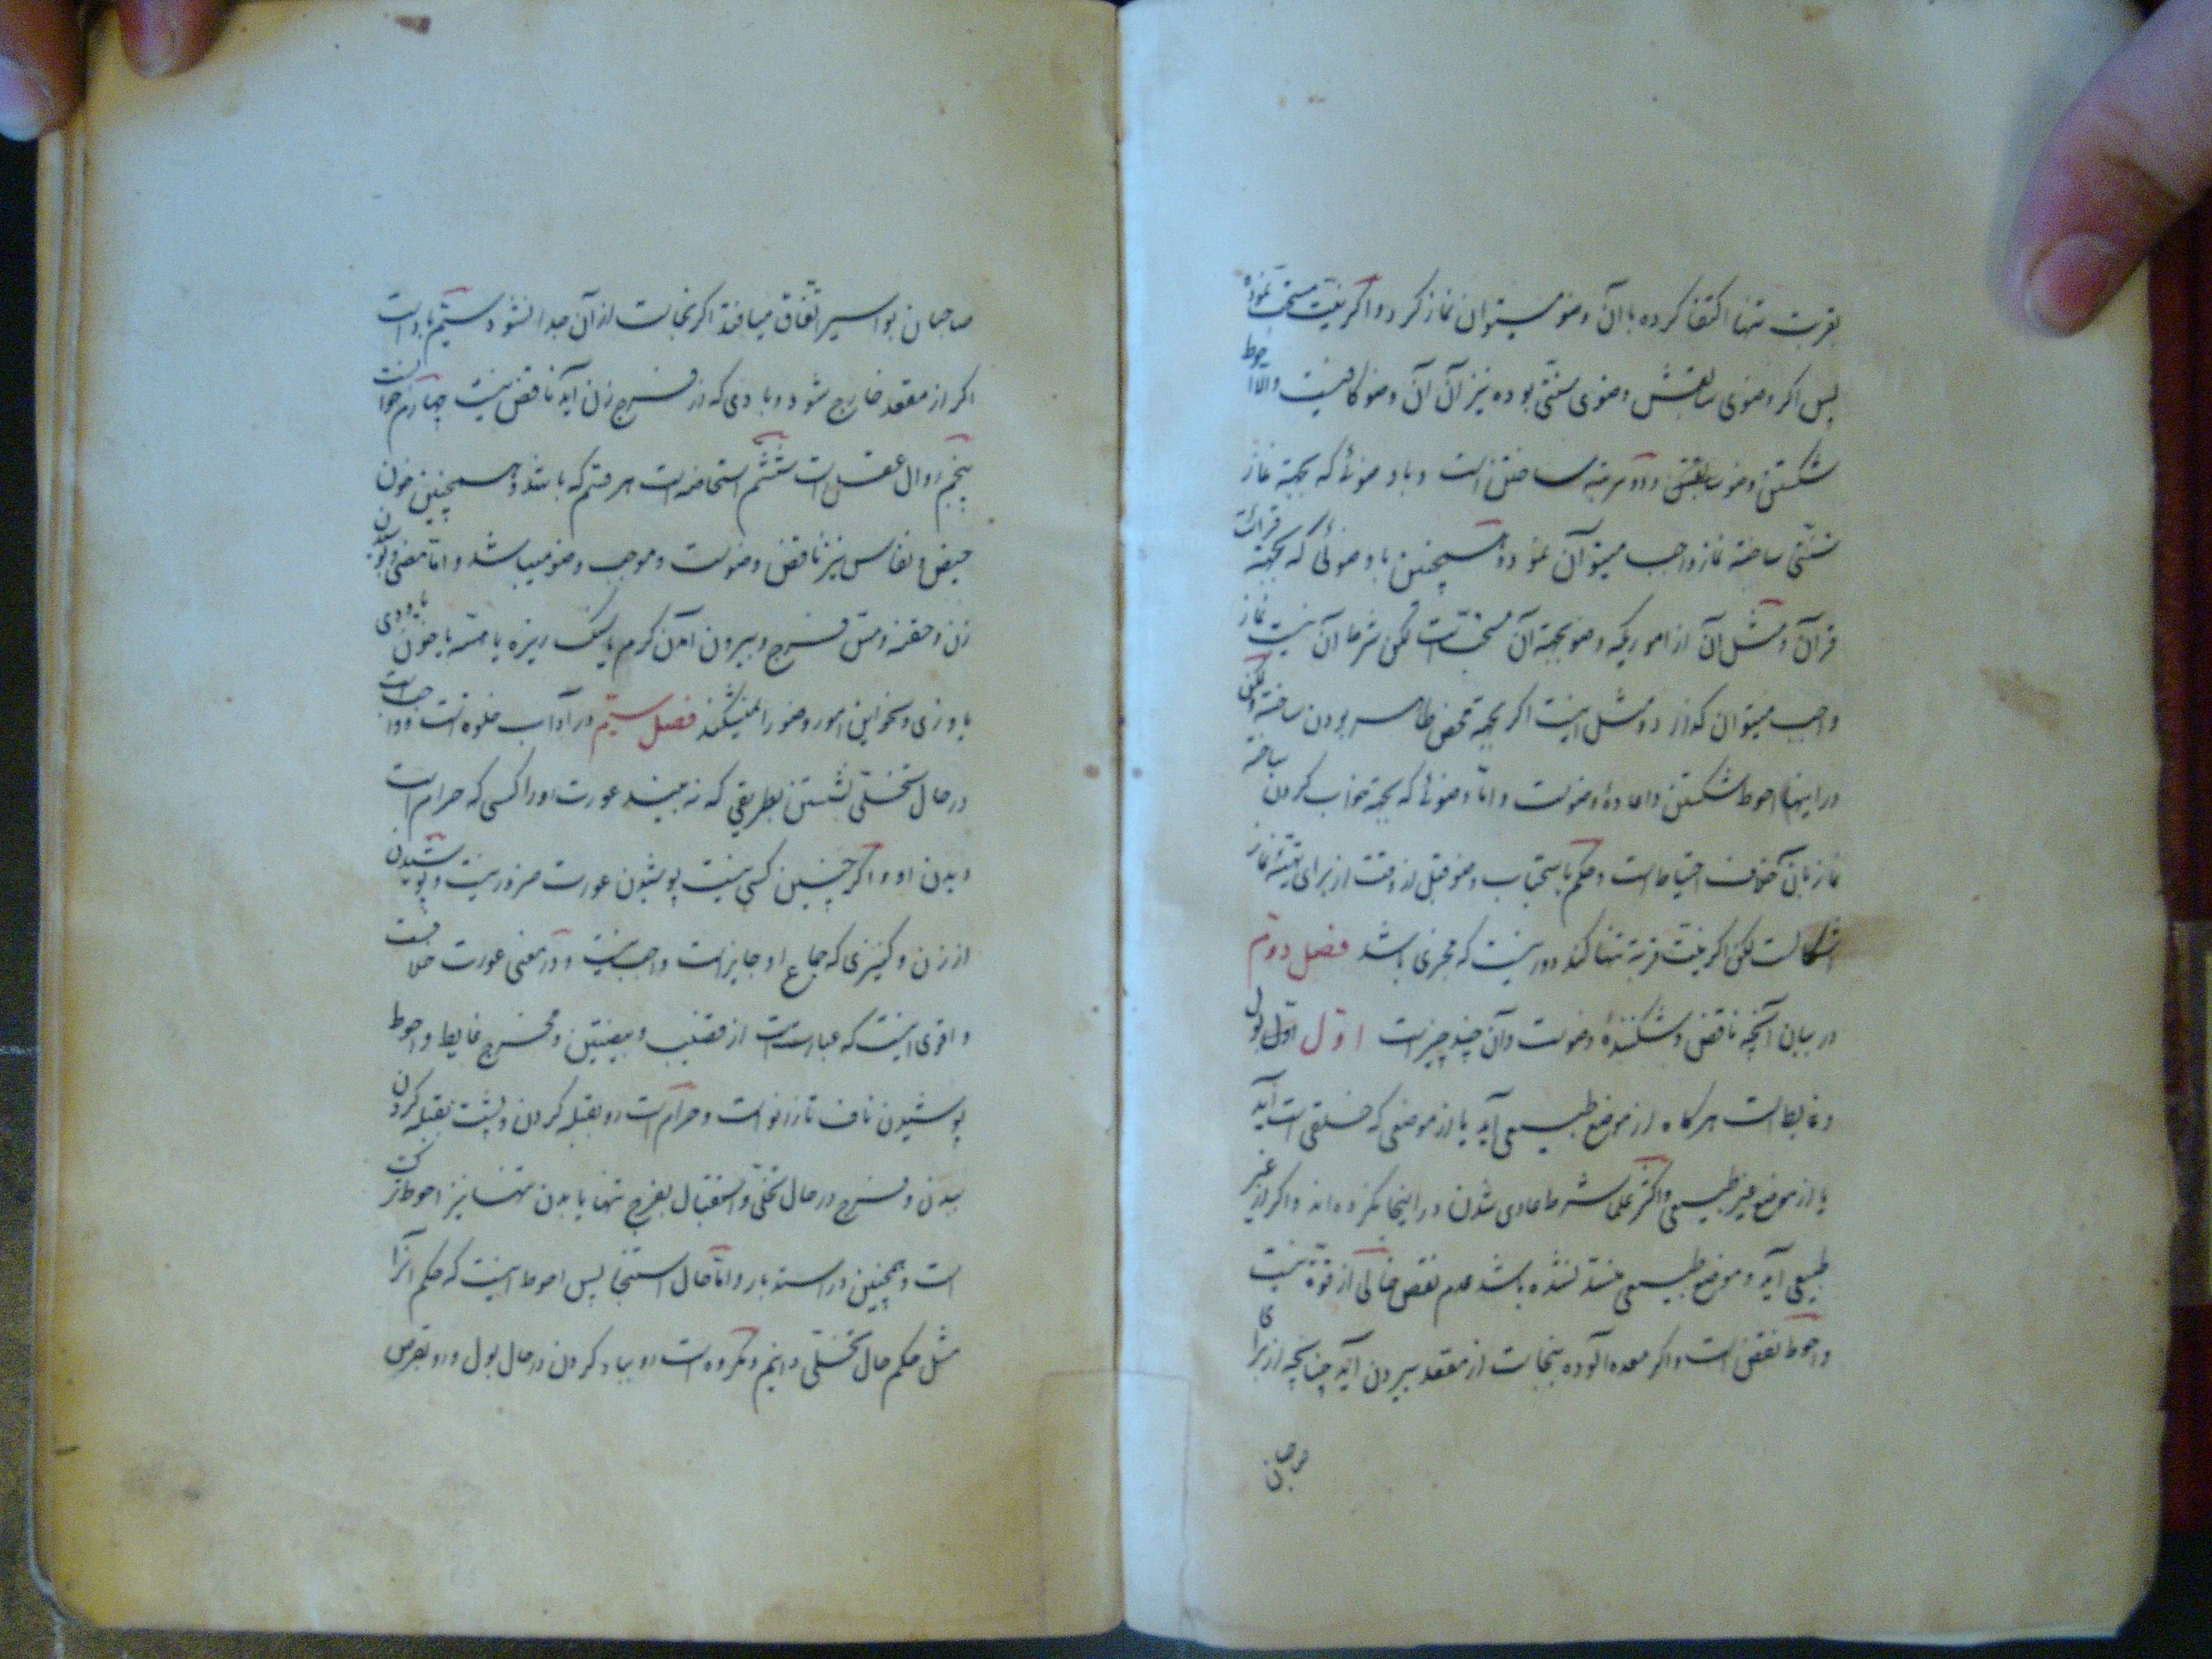 بقربت تنها اکتفا کرده باآن وضو میتوان نماز کرد و اکر بنیت مستحبی نموده
پس اکر وضوی سابقش وضوی سنتی بوده نیز آن آن وضو کافیست والا احوط
شکستن وضو سابقش و دو مرتبه ساختن است و با وضوئی که بجهة نماز
سنتی ساخته نماز واجب میتوان نمود و همچنین با وضوئی که بجهة قرائت
قرآن و مثل آن از اموریکه وضو بجهة آن مستحبّ است لکن شرط آن نیست نماز
واجب میتوان کذارد و مثل اینست اکر بجهة محض طاهر بودن ساخته ولکن
در اینها احوط شکستن و اعادهٔ وضوست و امّا وضوئی که بجهة خواب کردن ساخته
نماز بآن خلاف احتیاط است و حکم باستحباب وضو قبل از وقت از برای تهیّهٔ نماز
اشکالست لکن اکر بنیّت قربة تنها کند دور نیست که مجزی باشد فصل دوّم
در بیان آنچه ناقض و شکنندهٔ وضوست و آن چند چیز است اوّل اوّل بول
و غایط است هرکاه از موضع طبیعی آید یا از موضعی که خلقی است آید
یا از موضع غیر طبیعی و اکثر علما شرط عادی شدن در اینجا نکرده‌اند و اکر از غیر
طبیعی آید و موضع طبیعی منسد نشده باشد عدم نقض خالی از قوّة نیست
و احوط نقض است و اکر معده آلوده بنجاست از مقعد بیرون آید چنانچه از برای
صاحبان
صاحبان بواسیر اتّفاق میافتد اکر نجاست از آن جدا نشود سیّم باد است
اکر از مقعد خارج شود و بادی که از فرج زن آید ناقض نیست چهارم خوابست
پنجم زوال عقل است ششم استحاضه است هر قسم که باشد و همچنین خون
حیض و نفاس نیز ناقض وضوست و موجب وضو میباشد و امّا مضی و بوسیدن
زن و حقنه و مسّ فرج و بیرون آمدن کرم یا سنک ریزه یا هسته یا خون یا ودی
یا وزی و نحو این امور وضو را نمیشکند فصل سیّم در آداب خلوة است و واجب است
در حال تخلّی نشستن بطریقی که نه بیند عورت او را کسی که حرام است
دیدن او و اکر چنین کسی نیست پوشیدن عورت ضرور نیست و پوشیدن
از زن و کنیزی که جماع او جایز است واجب نیست و در معنی عورت خلافست
و اقوی اینست که عبارتست از قضیب و بیضتین و مخرج غایط و احوط
پوشیدن ناف تا زانو است و حرام است رو بقبله کردن و پشت بقبله کردن
ببدن و فرج در حال تخلّی و استقبال بفرج تنها یا بدن تنها نیز احوط ترکست
است و همچنین در استدبار و امّا حال استنجا پس احوط اینست که حکم آنرا
مثل حکم حال تخلّی دانیم و مکروه است رو بباد کردن در حال بول و رو بقرص